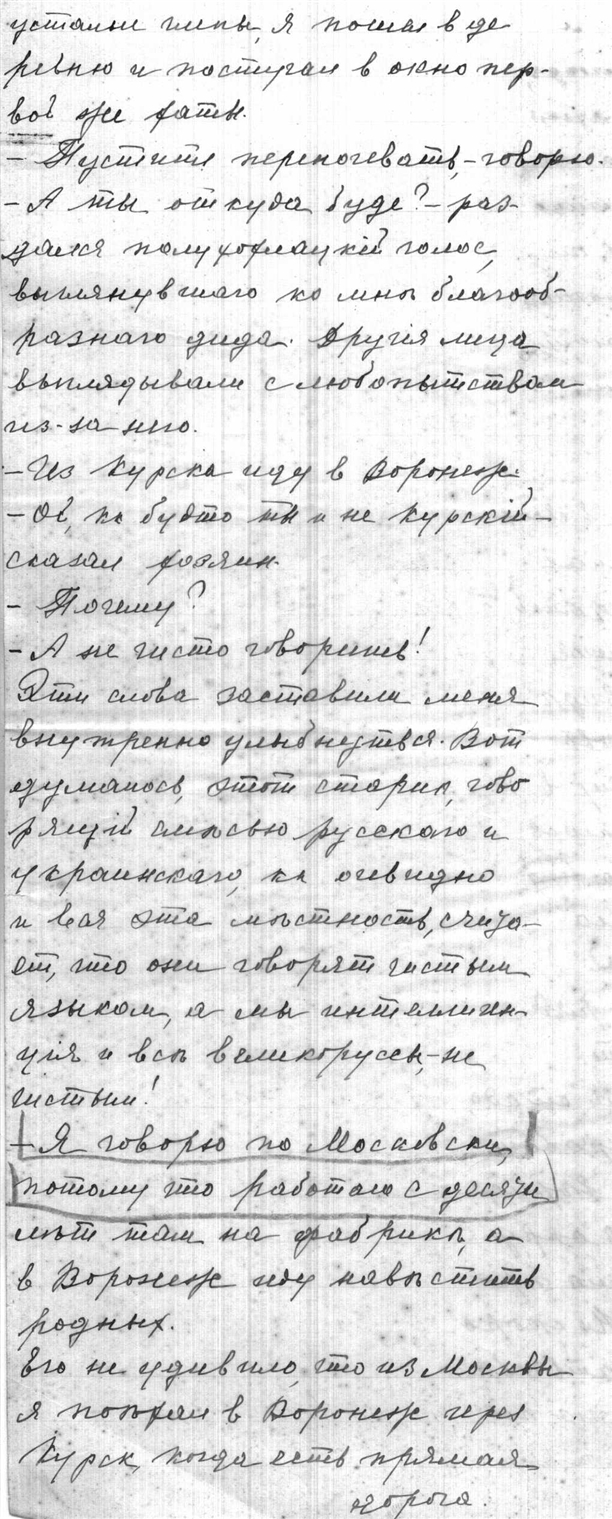 усталы мы, я пошел в де
ревню и постучал в окно пер-
вой же хаты.
– Пустите переночевать, – говорю.
– А ты откуда буде? – раз-
дался полухохлацкій голос,
выглянувшаго ко мнѣ благооб-
разнаго дида. Другія лица
выглядывали с любопытством
из-за него.
– Из Курска иду в Воронеж.
– Ой, ка будто ты и не Курскій –
сказал хозяин.
– Почему?
– А не чисто говоришь!
Эти слова заставили меня
внутренно улыбнуться. Вот
думалось, этот старик, гово
рящій смѣсью русскаго и
украинскаго, как очевидно
и вся эта мѣстность, счита-
ет, что они говорят чистым
языком, а мы интеллиген-
ція и всѣ великоруссы, – не
чистым!
– Я говорю по Московски,
потому что работаю с десяти
лѣт там на фабрикѣ, а
в Воронеж иду навѣстить
родных.
Его не удивило, что из Москвы
я попхал в Воронеж через
Курск, когда есть прямая
дорога.